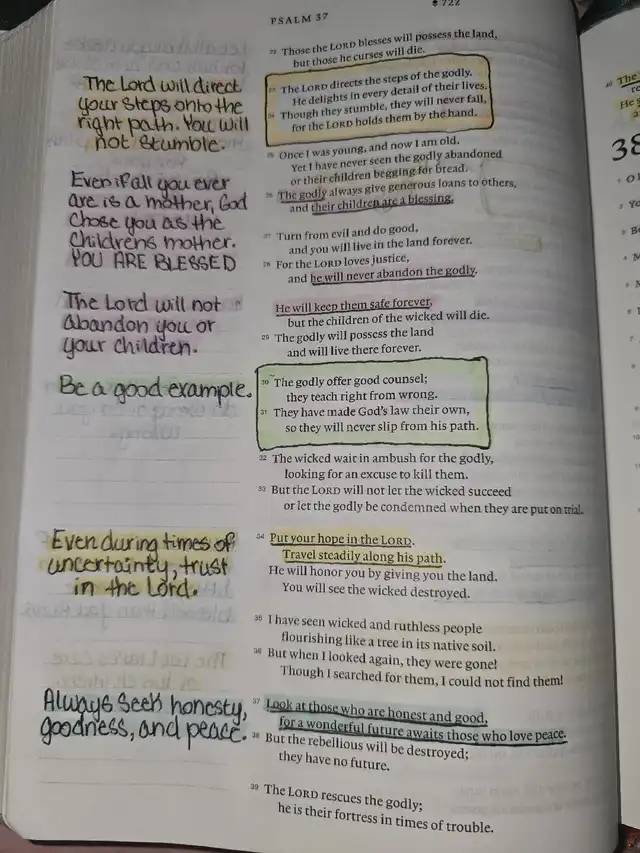 PSALM 37
722
22 Those the LORD blesses will possess the land,
but those he curses will die.
23 The LORD directs the steps of the godly.
He delights in every detail of their lives.
24 Though they stumble, they will never fall,
for the LORD holds them by the hand.
The Lord will direct
your steps onto the
right path. You will
not stumble.
25 Once I was young, and now I am old.
Yet I have never seen the godly abandoned
or their children begging for bread.
26 The godly always give generous loans to others,
and their children are a blessing.
Even if all you ever
are is a mother, God
chose you as the
childrens mother.
YOU ARE BLESSED
27 Turn from evil and do good,
and you will live in the land forever.
28 For the LORD loves justice,
and he will never abandon the godly.
He will keep them safe forever,
but the children of the wicked will die.
29 The godly will possess the land
and will live there forever.
The Lord will not
abandon you or
your children.
30 The godly offer good counsel;
they teach right from wrong.
31 They have made God's law their own,
so they will never slip from his path.
Be a good example.
32 The wicked wait in ambush for the godly,
looking for an excuse to kill them.
33 But the LORD will not let the wicked succeed
or let the godly be condemned when they are put on trial.
34 Put your hope in the LORD.
Travel steadily along his path.
He will honor you by giving you the land.
You will see the wicked destroyed.
Even during times of
uncertainty, trust
in the Lord.
35 I have seen wicked and ruthless people
flourishing like a tree in its native soil.
36 But when I looked again, they were gone!
Though I searched for them, I could not find them!
37 Look at those who are honest and good,
for a wonderful future awaits those who love peace.
38 But the rebellious will be destroyed;
they have no future.
Always seek honesty,
goodness, and peace.
39 The LORD rescues the godly;
he is their fortress in times of trouble.
40 The
He
38